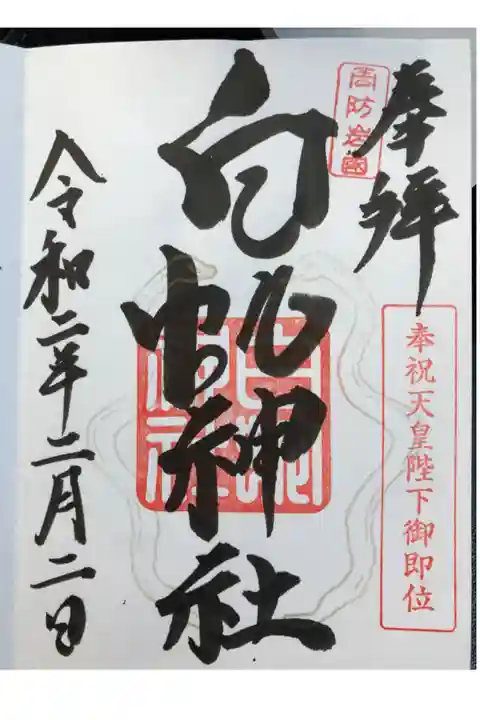 奉拝
周防岩國
奉祝天皇陛下御即位
白蛇神社
白蛇神社
令和二年二月二日